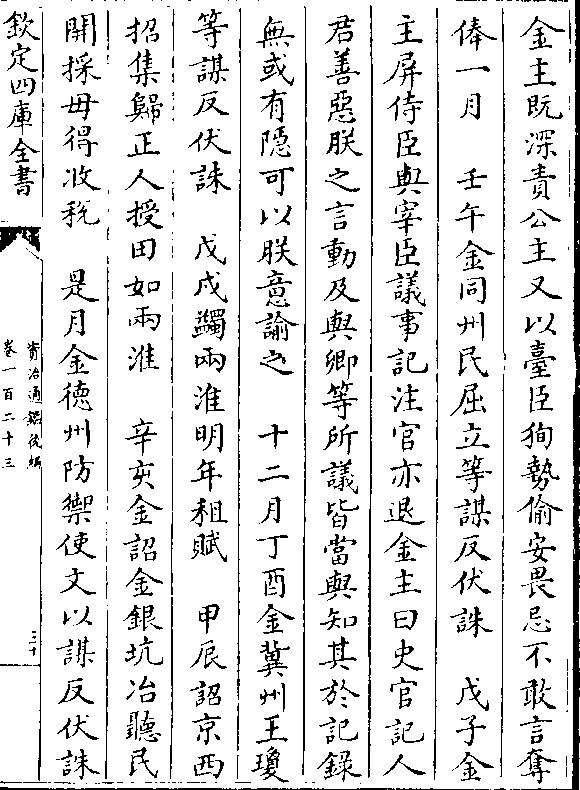 金主既深責公主又以臺臣狥勢偷安畏忌不敢言奪
俸一月　壬午金同州民屈立等謀反伏誅　戊子金
主屏侍臣與宰臣議事記注官亦退金主曰史官記人
君善惡朕之言動及與卿等所議皆當與知其於記録
無或有隠可以朕意諭之　十二月丁酉金冀州王瓊
等謀反伏誅　戊戌蠲兩淮明年租賦　甲辰詔京西
招集歸正人授田如兩淮　辛亥金詔金銀坑冶聽民
開採毋得收税　是月金徳州防禦使文以謀反伏誅
欽定四庫全書
資治通鑑後編
卷一百二十三
三十